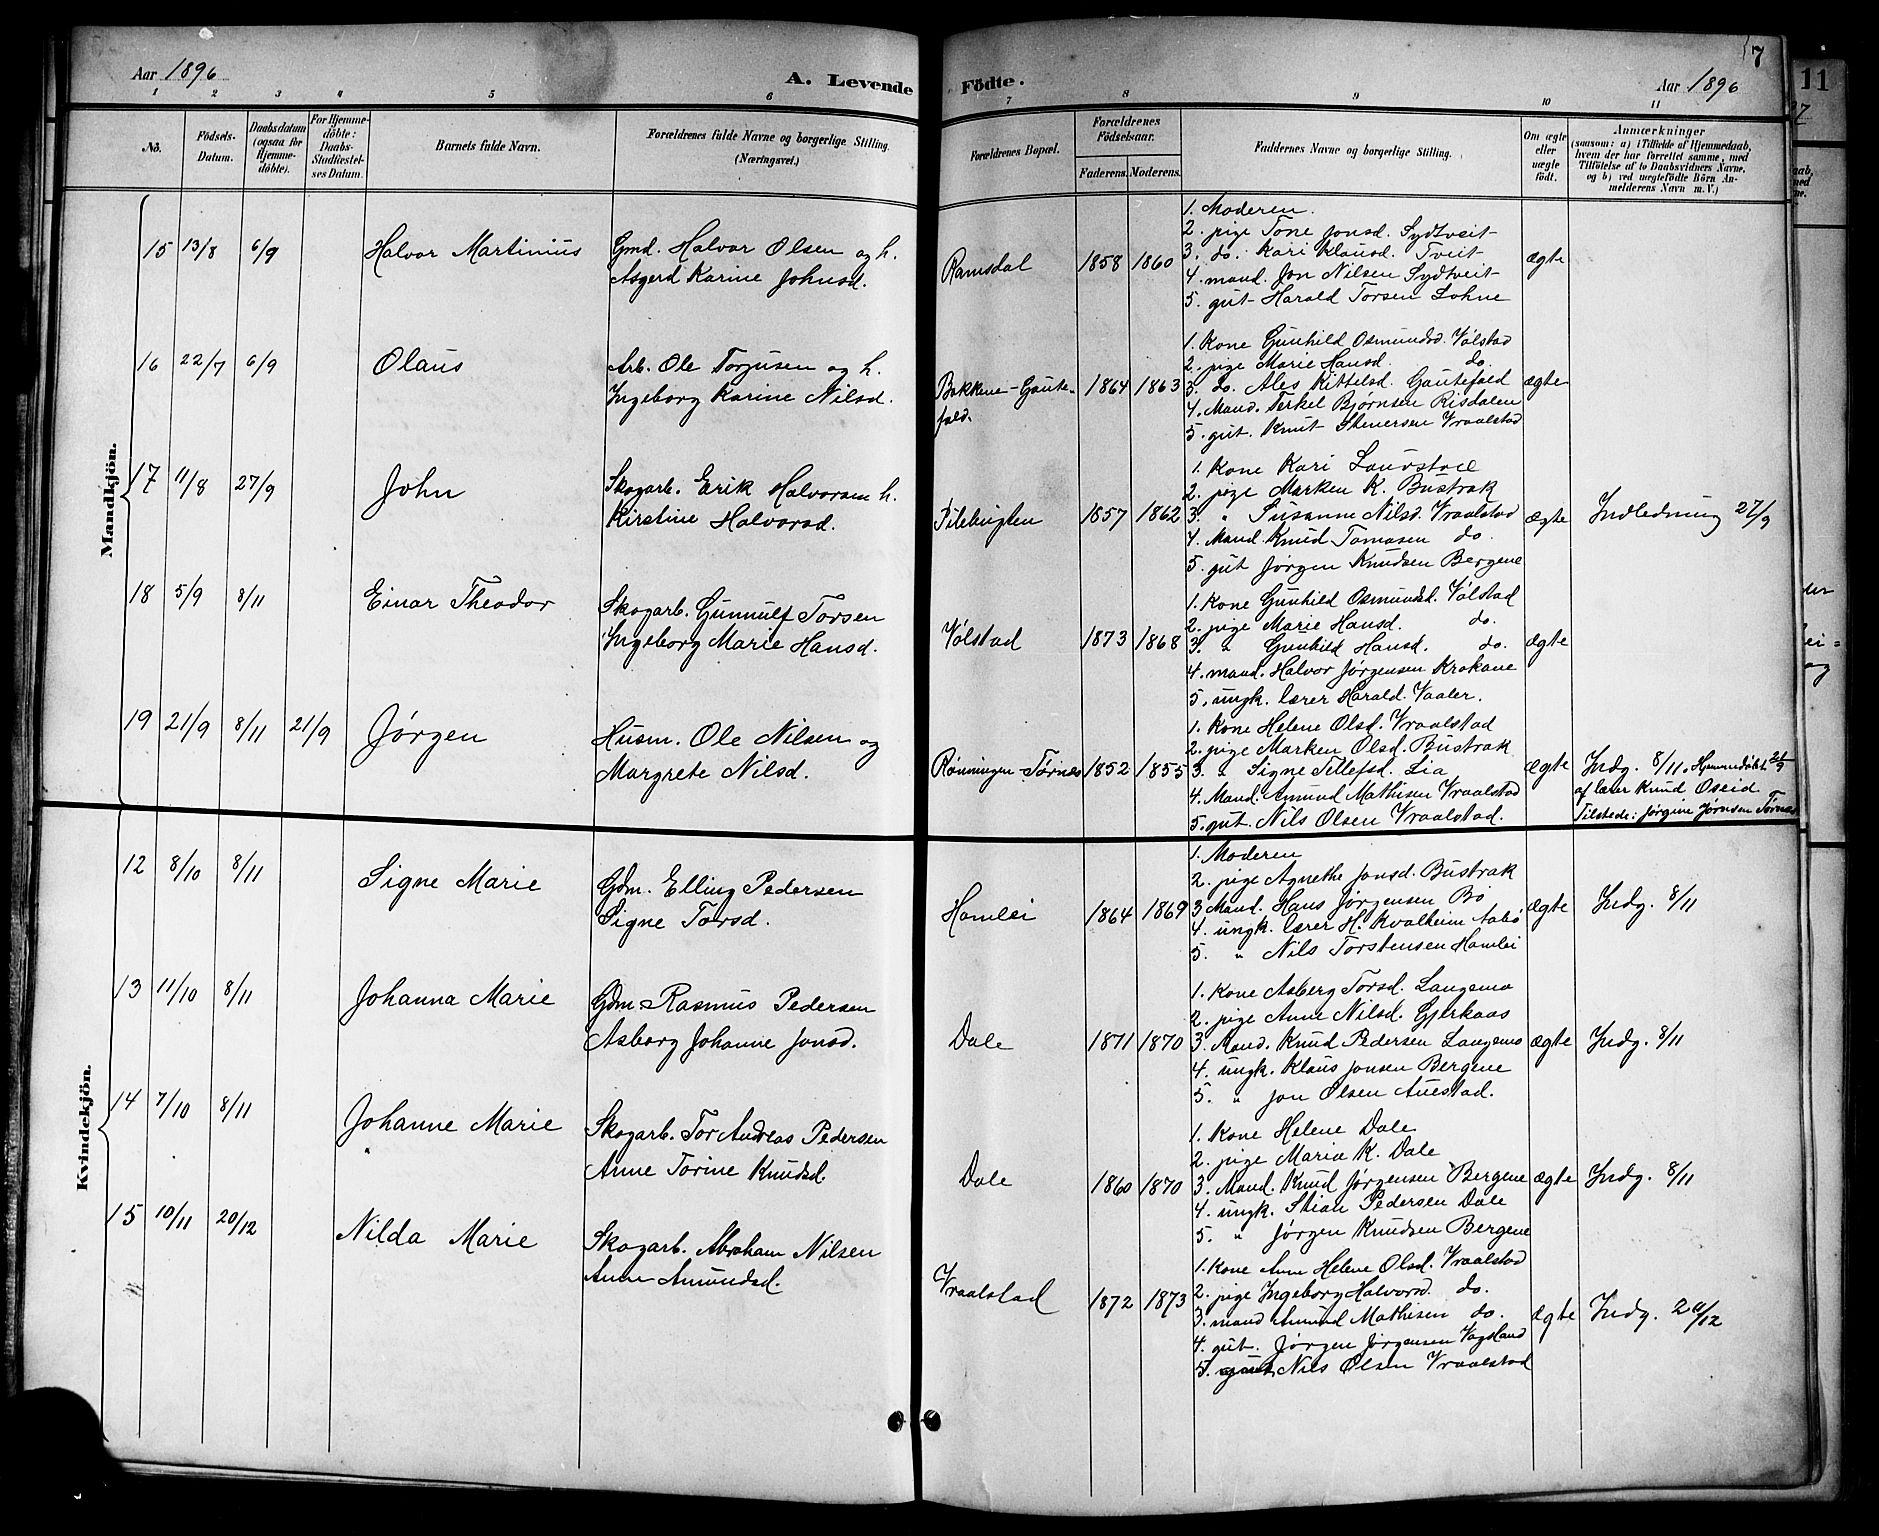 Aar 1896
A. Levende
Födte.
Aar 1896
7
11
1 2 3 4 5 6
7 8 9 10 11
No.
Födsels-
Datum.
Daabsdatum
(ogsaa for
Hjemme-
döbte).
For Hjemme-
döbte:
Daabs-
Stadfæstel-
ses Datum.
Barnets fulde Navn.
Forældrenes fulde Navne og borgerlige Stilling.
(Næringsvei.)
Forældrenes Bopæl.
Forældrenes
Födselsaar.
Faderens. Moderens.
Faddernes Navne og borgerlige Stilling.
Om ægte
eller
uægte
födt.
Anmærkninger
(saasom: a) i Tilfælde af Hjemmedaab,
hvem der har forrettet samme, med
Tilföielse af to Daabsvidners Navne,
og b) ved uægtefödte Börn An-
melderens Navn m. V.)
Mandkjön.
15 13/8 6/9 Halvor Martinius
Gmd. Halvor Olsen og h.
Asgerd Karine Johnsd.
Ramsdal 1858 1860
1. Moderen.
2. pige Tone Jonsd. Sydtveit
3. do. Kari Klausd. Tveit
4. mand. Jon Nilsen Sydtveit
5. gut Harald Torsen Lohne
ægte
16 22/7 6/9 Olaus
Arb. Ole Torjusen og h.
Ingeborg Karine Nilsd.
Bakkene-Gaute-
fald. 1864 1863
1. Kone Gunhild Osmundsd. Vølstad
2. pige Marie Hansd. do.
3. do. Ales Kittelsd. Gautefald
4. Mand. Terkel Bjørnsen Risdalen
5. gut. Knut Stenersen Vraalstad
ægte
17 11/8 27/9 John
Skogarb. Erik Halvorsen h.
Kirstine Halvorsd.
1857 1862
1. Kone Kari
2. pige Marken K. Bustrak
3. " Susanne Nilsd. Vraalstad
4. Mand. Knud Tomasen do.
5. gut Jørgen Knudsen Bergene
ægte
Indledning 27/9
18 5/9 8/11 Einar Theodor
Skogarb. Gunnulf Torsen
Ingeborg Marie Hansd.
Vølstad 1873 1868
1. Kone Gunhild Osmundsd. Vølstad
2. pige Marie Hansd. do.
3. " Gunhild Hansd. do.
4. mand. Halvor Jørgensen Krokane
5. ungk. lærer Harald Vaaler.
ægte
19 21/9 8/11 21/9 Jørgen
Husm. Ole Nilsen og
Margrete Nilsd.
Rønningen-Tørnes 1852 1855
1. Kone Helene Olsd. Vraalstad
2. pige Marken Olsd. Bustrak
3. " Signe Tellefsd. Lia
4. Mand. Amund Mathisen Vraalstad
5. gut. Nils Olsen Vraalstad.
ægte
Indg. 8/11. Hjemmedøbt 21/9
af lærer Knud Oseid
Tilstede: Jørgine Jørnsen Tørnes
Kvindekjön.
12 8/10 8/11 Signe Marie
Gdm. Elling Pedersen
Signe Torsd.
Hamlei 1864 1869
1. Moderen
2. pige Agnethe Jonsd. Bustrak
3 Mand. Hans Jørgensen Bø
4. ungk. lærer H. Kvalheim Aabø
5. " Nils Torstensen Hamlei
ægte
Indg. 8/11
13 11/10 8/11 Johanna Marie
Gdm. Rasmus Pedersen
Asborg Johanne Jonsd.
Dale 1871 1870
1. Kone Asberg Torsd. Langemo
2. pige Anne Nilsd. Gjerkaas
3. Mand. Knud Pedersen Langemo
4. ungk. Klaus Jonsen Bergene
5. " Jon Olsen Auestad.
ægte
Indg. 8/11
14 7/10 8/11 Johanne Marie
Skogarb. Tor Andreas Pedersen
Anne Torine Knudsd.
Dale 1860 1870
1. Kone Helene Dale
2. pige Maria K. Dale
3. Mand. Knud Jørgensen Bergene
4. ungk. Stian Pedersen Dale
5. " Jørgen Knudsen Bergene
ægte
Indg. 8/11
15 10/11 20/12 Nilda Marie
Skogarb. Abraham Nilsen
Anne Amundsd.
Vraalstad 1872 1873
1. Kone Ann Helene Olsd. Vraalstad
2. pige Ingeborg Halvorsd. do.
3. mand Amund Mathisen do.
4. gut. Jørgen Jørgensen Vagsland
5. Nils Olsen Vraalstad
ægte
Indg. 20/12